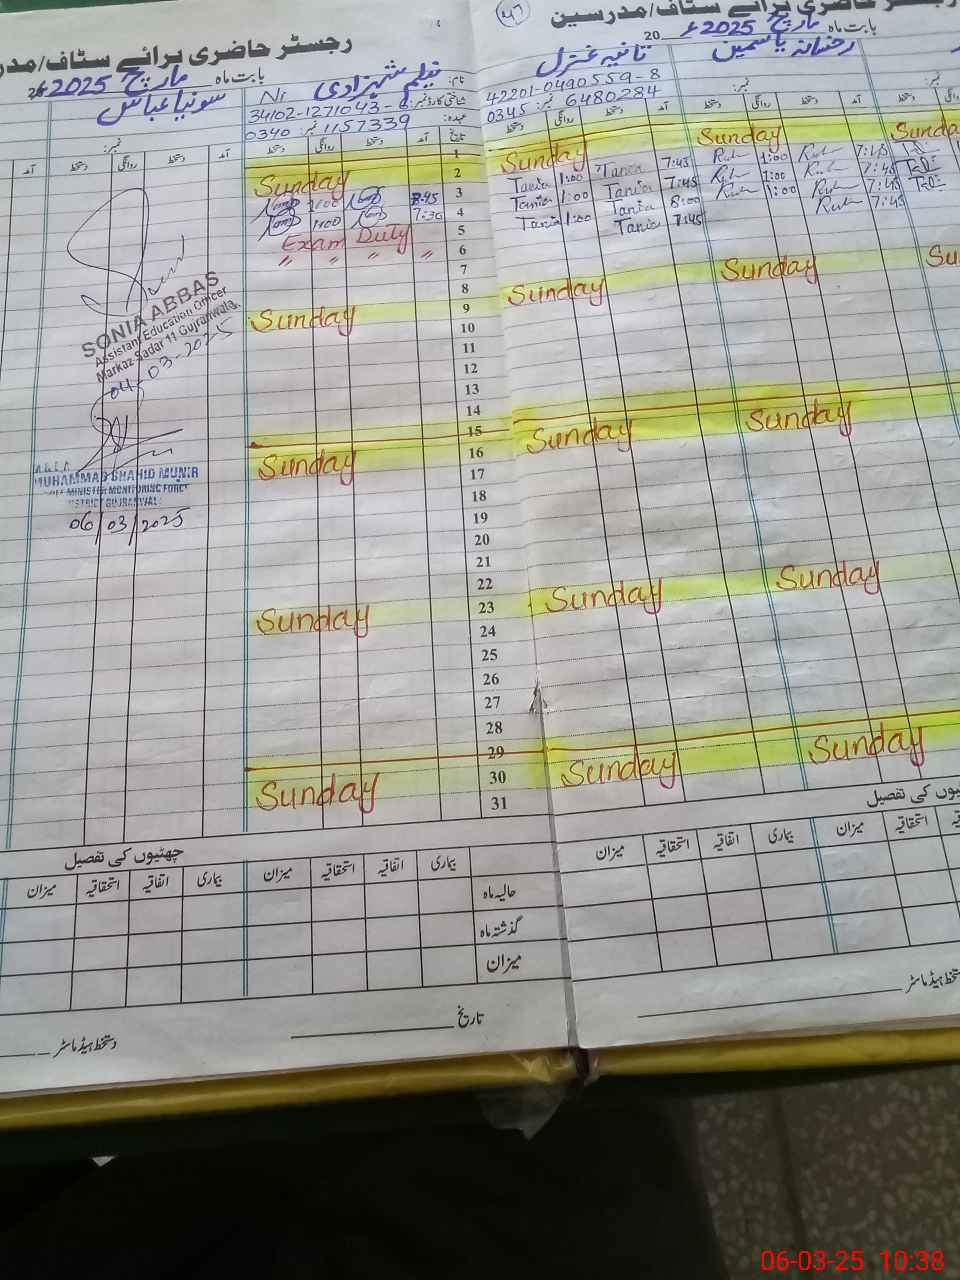 رجسٹر حاضری برائے سٹاف/مدر
بابت ماہ مارچ 2025ء
سونیا عباس
نام: نیلم شہزادی
شناختی کارڈ نمبر: 34102-1271043-
عہدہ:
0340 نمبر: 1157339
نمبر:
تاریخ آمد دستخط روانگی دستخط
آمد دستخط روانگی دستخط آمد
1
2 Sunday
3 8:45 1:00
4 7:30 1:00
5 Exam Duty
6 " " " "
7
8
9 Sunday
10
11
12
13
14
15
16 Sunday
17
18
19
20
21
22
23 Sunday
24
25
26
27
28
29
30 Sunday
31
SONIA ABBAS
Assistant Education Officer
Markaz Sadar 11 Gujranwala.
04-03-2025
MUHAMMAD SHAHID MUNIR
MINISTER MONITORING FORCE
DISTRICT GUJRANWALA
06/03/2025
چھٹیوں کی تفصیل
بیماری اتفاقیہ استحقاقیہ میزان بیماری اتفاقیہ استحقاقیہ میزان
حالیہ ماہ
گذشتہ ماہ
میزان
تاریخ
دستخط ہیڈ ماسٹر
47
رجسٹر حاضری برائے سٹاف/مدرسین
بابت ماہ مارچ 2025ء 20
ثانیہ غزل
42201-0490559-8
0345 نمبر: 6480284
رخسانہ یاسمین
نمبر:
نمبر:
آمد دستخط روانگی دستخط آمد دستخط روانگی دستخط
Sunday Sunday Sunda
Tania 1:00 Tania 7:45 1:00 7:45
Tania 1:00 Tania 7:45 1:00 7:45
Tania 1:00 Tania 8:00 1:00 7:45
Tania 7:45 7:45
Sunday Sunday Su
Sunday Sunday
Sunday Sunday
Sunday Sunday
یوں کی تفصیل
استحقاقیہ میزان بیماری اتفاقیہ استحقاقیہ میزان
دستخط ہیڈ ماسٹر
06-03-25 10:38